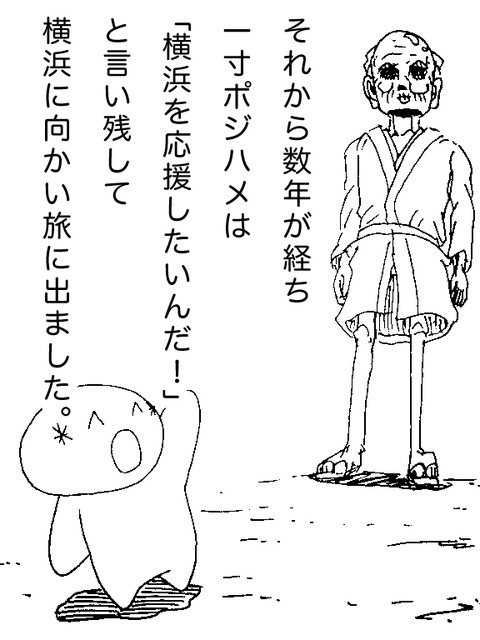 それから数年が経ち
一寸ポジハメは
「横浜を応援したいんだ！」
と言い残して
横浜に向かい旅に出ました。